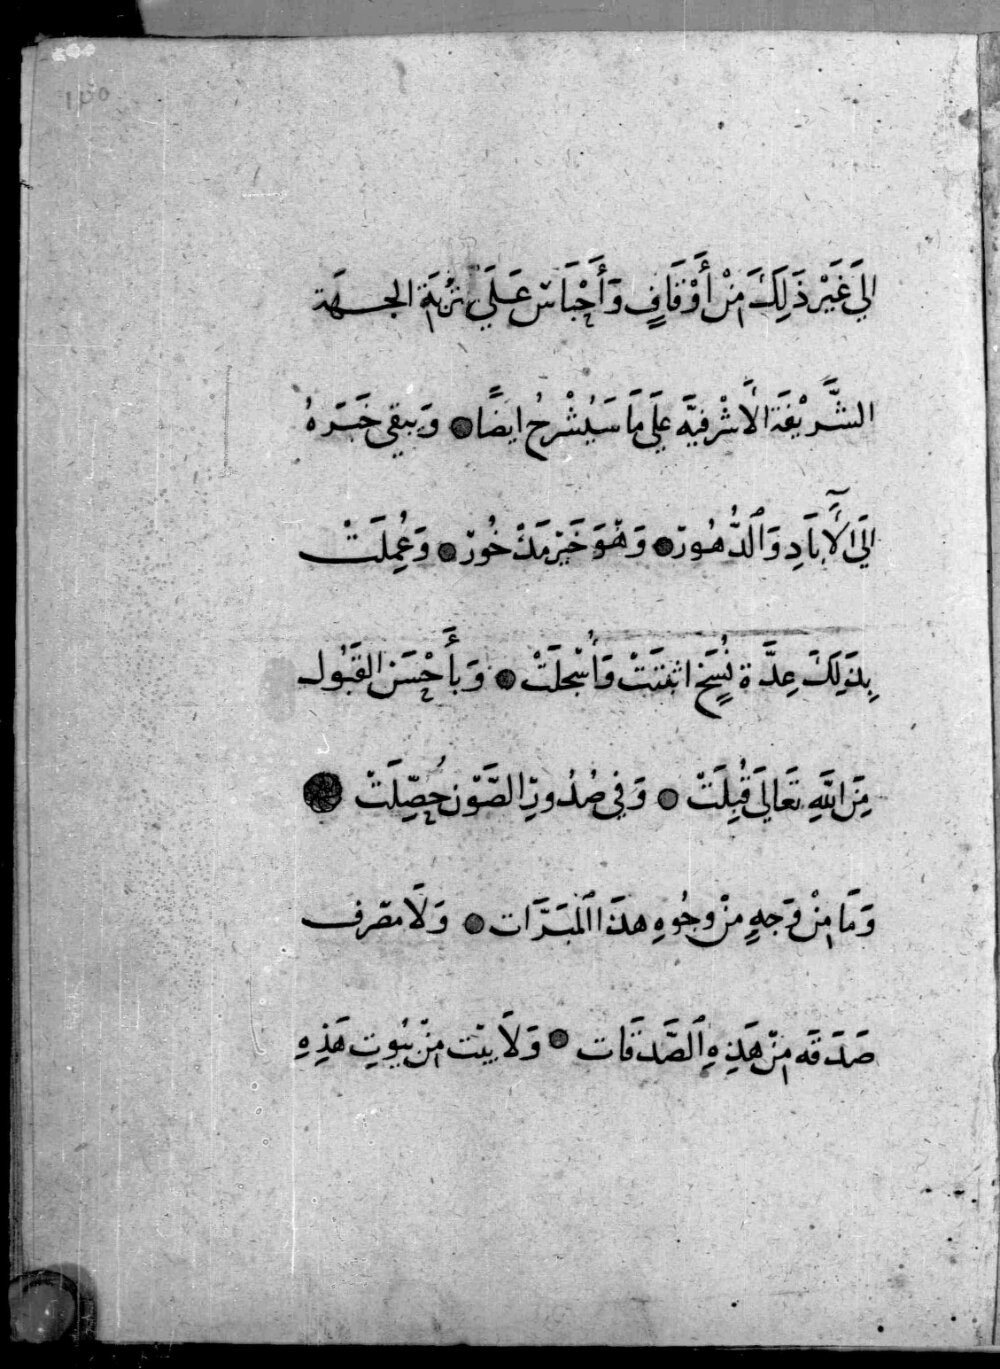 ١٥٥
اليَ غَيْرِ ذَلِكَ مِنْ أَوْقَافٍ وَأَحْبَاسٍ عَلَيَ تُرْبَةِ الجهَة
الشَّرِيْفَة الأَشْرفيَّه علَي مَا سَيُشْرحُ ايضًا ● وَيبقي خَبَرهُ
اليَ الآبَادِ وَالدُّهُورْ ● وَهْوَ خَيْر مَذْخُورْ ● وَعُمِلَتْ
بِذَلِكَ عِدَّة نُسَخٍ اثبتَتْ وَأُسْجلَتْ ● وَبأَحْسَن القَبُول
مِنَ اللَّهِ تعَاليَ قُبِلَتْ ● وَفي صُدُورِ الصَّوْن حُصِّلَتْ
وَمَا مِنْ وَجهٍ مِنْ وجُوهِ هذَا المَبَرَّات ● وَلَا مصْرف
صَدَقَه مِنْ هَذِهِ الصَّدَقَات ● وَلَا بيْت مِنْ بُيُوتِ هَذِهِ